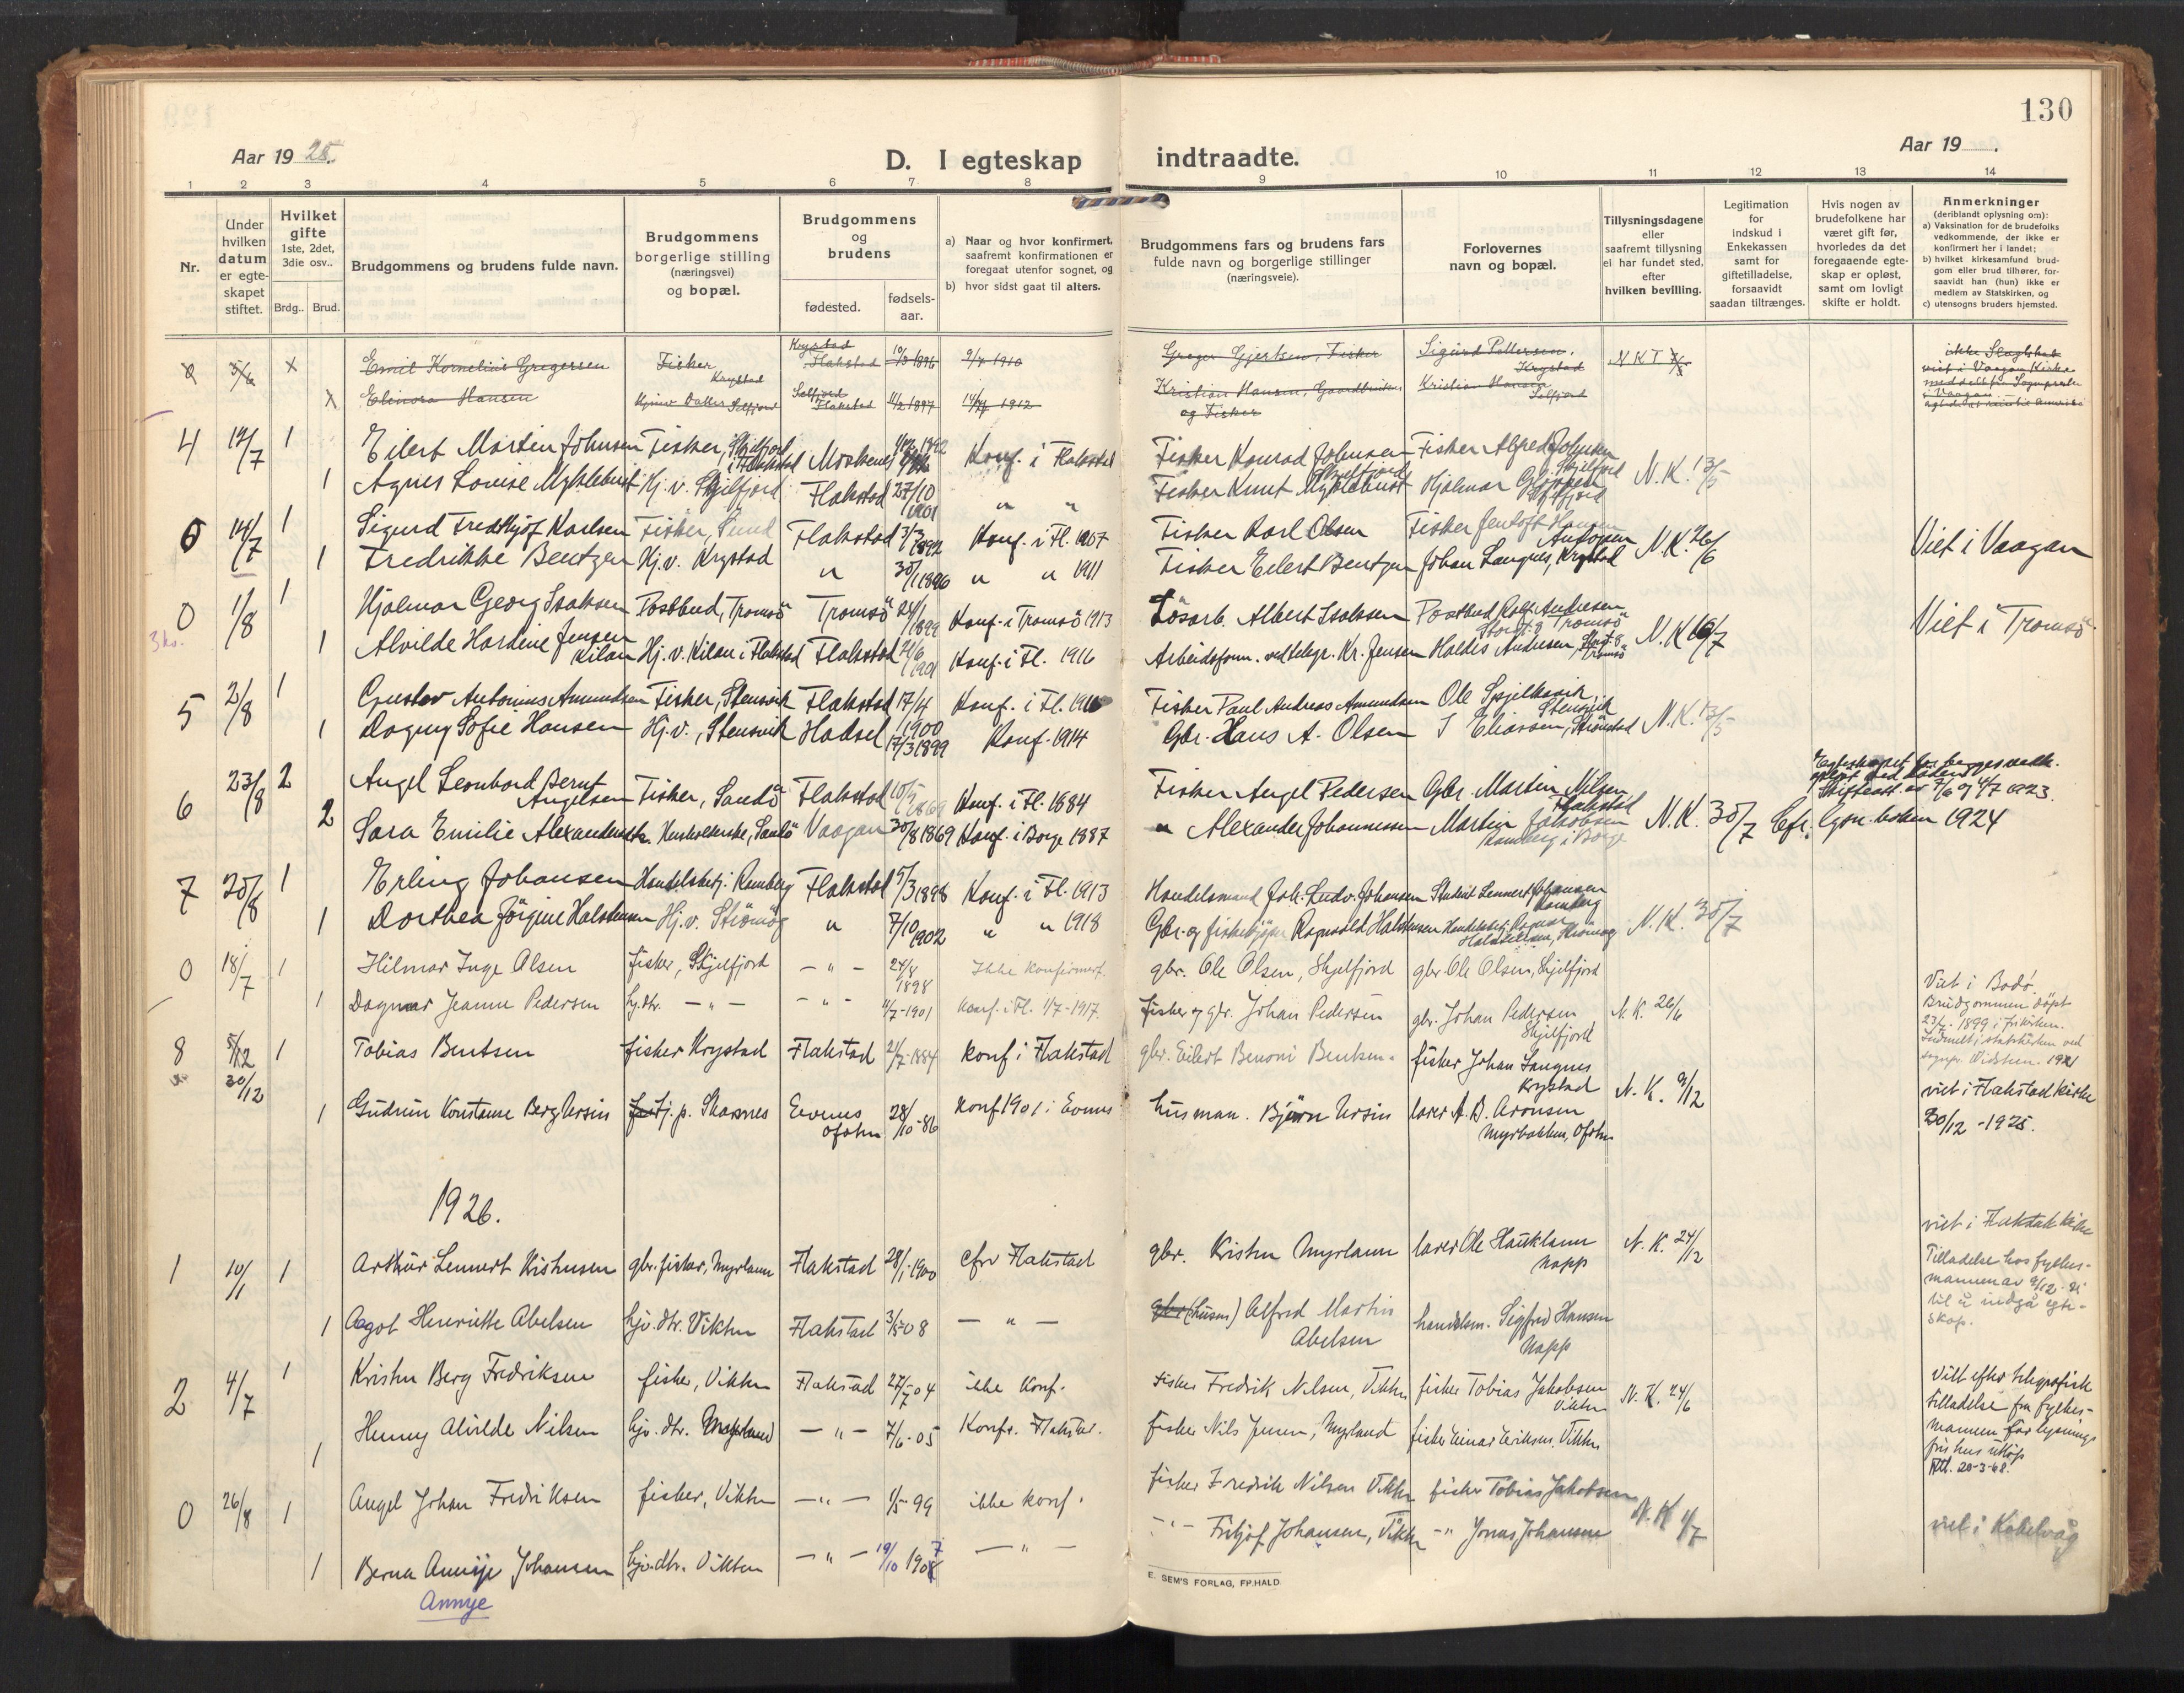 130
Aar 1925.
D. I egteskap indtraadte.
Aar 19 .
1 2 3 4 5 6 7 8 9 10 11 12 13 14
Nr.
Under hvilken datum er egteskapet stiftet.
Hvilket gifte 1ste, 2det, 3die osv..
Brdg.. Brud.
Brudgommens og brudens fulde navn.
Brudgommens borgerlige stilling (næringsvei) og bopæl.
Brudgommens og brudens
fødested.
fødselsaar.
a) Naar og hvor konfirmert, saafremt konfirmationen er foregaat utenfor sognet, og
b) hvor sidst gaat til alters.
Brudgommens fars og brudens fars fulde navn og borgerlige stillinger (næringsveie).
Forlovernes navn og bopæl.
Tillysningsdagene eller saafremt tillysning ei har fundet sted, efter hvilken bevilling.
Legitimation for indskud i Enkekassen samt for giftetilladelse, forsaavidt saadan tiltrænges.
Hvis nogen av brudefolkene har været gift før, hvorledes da det foregaaende egteskap er opløst, samt om lovligt skifte er holdt.
Anmerkninger (deriblandt oplysning om):
a) Vaksination for de brudefolks vedkommende, der ikke er konfirmert her i landet;
b) hvilket kirkesamfund brudgom eller brud tilhører, forsaavidt han (hun) ikke er medlem av Statskirken, og
c) utensogns bruders hjemsted.
Emil Kornelius Gregersen Fisker Krystad Flakstad 1896 1910 Greger Gjertsen, Fisker Sigurd Pettersen, Krystad
Elinora Hansen Selfjord Flakstad 11/2 1897 1912 Kristian Hansen, Gaardbruker og Fisker Kristian Hansen Selfjord
4 14/7 1 Eilert Martin Johnsen Fisker, Skjelfjord i Flakstad Moskenes 1892 Konf. i Flakstad Fisker Konrad Johnsen Skjelfjord Fisker Alfred Johnsen Skjelfjord N.K. 13/5
1 Agnes Lovise Myklebust Hj.v. Skjelfjord Flakstad 27/10 1901 " " Fisker Knut Myklebust Hjalmar
14/7 1 Sigurd Fredthjof Karlsen Fisker, Sund Flakstad 3/3 1892 Konf. i Fl. 1907 Fisker Karl Olsen Fisker Jentoft Hansen N.K. 26/6 Viet i Vaagan
1 Fredrikke Bentzen Hj.v. Krystad " 30/1 1896 " " 1911 Fisker Eilert Bentzen Johan Langnes, Krystad
0 1/8 1 Hjalmar Georg Isaksen Postbud, Tromsö Tromsö 24/1 1899 Konf. i Tromsö 1913 Lösarb. Albert Isaksen Postbud Rolf Andresen Storgt. 8 Tromsö N.K. 16/7 Viet i Tromsö
3 ks. 1 Alvilde Hardine Jensen Kilan Hj.v. Kilan i Flakstad Flakstad 1901 Konf. i Fl. 1916 Arbeidsform. ved telegr. Kr. Jensen Haldis Andresen, Tromsö
5 2/8 1 Gustav Antonius Amundsen Fisker, Stensvik Flakstad 17/4 1900 Konf. i Fl. Fisker Paul Andreas Amundsen Ole Spjelkavik, Stensvik N.K. 13/5
1 Dagny Sofie Hansen Hj.v., Stensvik Hadsel 17/3 1899 Konf. 1914 Gbr. Hans A. Olsen J Eliassen, Strömstad
6 23/8 2 Angel Leonhard Bernt Angelsen Fisker, Sandö Flakstad 10/5 1869 Konf. i Fl. 1884 Fisker Angel Pedersen Gbr. Martin Nilsen Flakstad N.K. 30/7 Egteskapet for begges vedk. opløst ved döden. Skifteatt. av 7/6 og 4/7 1923.
2 Sara Emilie Alexandersdtr. Husholderske, Sandö Vaagan 30/8 1869 Konf. i Borge 1887 " Alexander Johannessen Martin Jakobsen Ramberg i Borge Cfr. lysn. boken 1924
7 30/8 1 Erling Johansen Handelsbetj. Ramberg Flakstad 5/3 1898 Konf. i Fl. 1913 Handelsmand Joh. Ludv. Johansen Student Lennert Johansen Ramberg N.K. 30/7
1 Dorthea Jörgine Halstensen Hj.v. Strömög " 7/10 1902 " " 1918 Gbr. og fiskekjøper Ragnvald Halstensen Handelsbetj. Ragnar Halstensen, Strömög
0 18/7 1 Hilmar Inge Olsen fisker, Skjelfjord - " - 24/8 1898 Ikke konfirmert. gbr. Ole Olsen, Skjelfjord gbr. Ole Olsen, Skjelfjord
1 Dagmar Jeanne Pedersen hj.dtr. - " - - " - 11/7-1901 Konf. i Fl. 1/7-1917. fisker og gbr. Johan Pedersen gbr. Johan Pedersen Skjelfjord N.K. 26/6 Viet i Bodö. Brudgommen döpt 23/4 1899 i frikirken. Indmeldt i statskirken ved sognepr. Vidsteen 1921
8 5/12 1 Tobias Bentsen fisker Krystad Flakstad 21/7-1884 konf i Flakstad gbr. Eilert Benoni Bentsen. fisker Johan Langnes Krystad N.K. 9/12 viet i Flakstad kirke 30/12-1925.
30/12 1 Gudrun Konstanse Berg Ursin tj. p. Skasnes Evenes Ofoten 28/10-86 konf 1901 i Evenes husman. Bjørn Ursin lærer A. B. Aronsen Myrbakken, Ofoten
1926.
1 10/1 1 Arthur Lennert Kristensen gbr. fisker, Myrland Flakstad 28/1-1900 cfr Flakstad gbr. Kristen Myrland lærer Ole Haukland Napp N.K. 24/12 viet i Flakstad kirke Tilladelse hos fylkesmannen av 9/12-25 til å indgå egteskap.
1 Aagot Henriette Abelsen hjv. dtr. Vikten Flakstad 3/5-08 - " - (husm) Alfred Martin Abelsen handelsm. Sigfred Hansen Napp
2 4/7 1 Kristen Berg Fredriksen fisker, Vikten Flakstad 27/7-04 ikke konf. Fisker Fredrik Nilsen, Vikten fisker Tobias Jakobsen Vikten N.K. 24/6 Viet efter telegrafisk tilladelse fra fylkesmannen før lysningsfristens utløp Att. 20-3-68.
1 Henny Alvilde Nilsen hjv. dtr. Myrland - " - 7/6-05 Konf. Flakstad. fisker Nils Jensen, Myrland fisker Einar Eriksen, Vikten
0 26/8 1 Angel Johan Fredriksen fisker, Vikten - " - 1/5-99 ikke konf. fisker Fredrik Nilsen Vikten fisker Tobias Jakobsen N.K. 4/7 viet i Kabelvåg
1 Berna Annye Johansen hjv. dtr. Vikten - " - 19/10 1907 - " - - " - Fritjof Johansen, Vikten - " Jonas Johansen
Annye
E. SEM'S FORLAG, FR.HALD